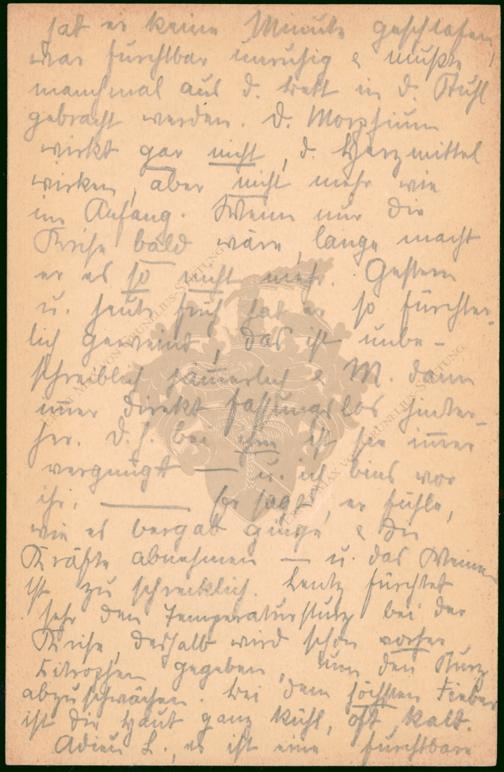 hat er keine Minute geschlafen,
war furchtbar unruhig & mußte
manchmal aus d. Bett in d. Stuhl
gebracht werden. D. Morphium
wirkt gar nicht, d. Herzmittel
wirken, aber nicht mehr wie
im Anfang. Wenn nur die
Krise bald wäre, lange macht
er es so nicht mehr. Gestern
u. heute früh hat er so fürchter-
lich geweint, das ist unbe-
schreiblich jämmerlich & M. dann
immer direkt fassungslos hinter-
her. D. h. bei ihm ist sie immer
vergnügt — u. ich bins vor
ihr. — Er sagt, er fühle,
wie es bergab ginge & die
Kräfte abnehmen — u. das Weinen
ist zu schrecklich. Lentz fürchtet
sehr den Temperatursturz bei der
Krise, deshalb wird schon vorher
gegeben, um den Sturz
abzuschwächen. Bei dem höchsten Fieber
ist die Haut ganz kühl, oft kalt.
Adieu L., es ist eine furchtbare